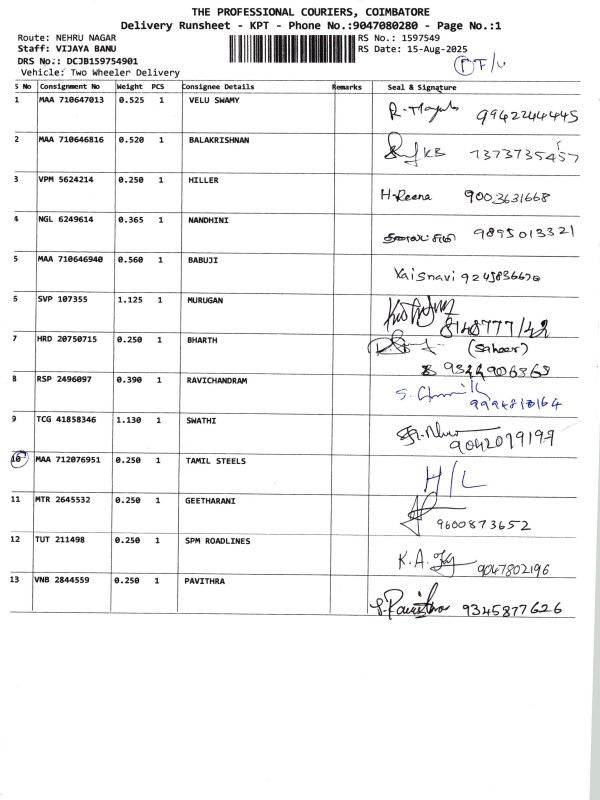 THE PROFESSIONAL COURIERS, COIMBATORE
Delivery Runsheet - KPT - Phone No.:9047080280 - Page No.:1
Route: NEHRU NAGAR RS No.: 1597549
Staff: VIJAYA BANU RS Date: 15-Aug-2025
DRS No.: DCJB159754901
Vehicle: Two Wheeler Delivery
S No Consignment No Weight PCS Consignee Details Remarks Seal & Signature
1 MAA 710647013 0.525 1 VELU SWAMY 9942244445
2 MAA 710646816 0.520 1 BALAKRISHNAN KB 7373735457
3 VPM 5624214 0.250 1 HILLER H-Reena 9003631668
4 NGL 6249614 0.365 1 NANDHINI 9895013321
5 MAA 710646940 0.560 1 BABUJI Vaisnavi 9245836670
6 SVP 107355 1.125 1 MURUGAN
7 HRD 20750715 0.250 1 BHARTH (Saheer)
8 RSP 2496097 0.390 1 RAVICHANDRAM 9994810164
9 TCG 41858346 1.130 1 SWATHI 9042079199
10 MAA 712076951 0.250 1 TAMIL STEELS H/L
11 MTR 2645532 0.250 1 GEETHARANI 9600873652
12 TUT 211498 0.250 1 SPM ROADLINES K.A. 9047802196
13 VNB 2844559 0.250 1 PAVITHRA 9345877626